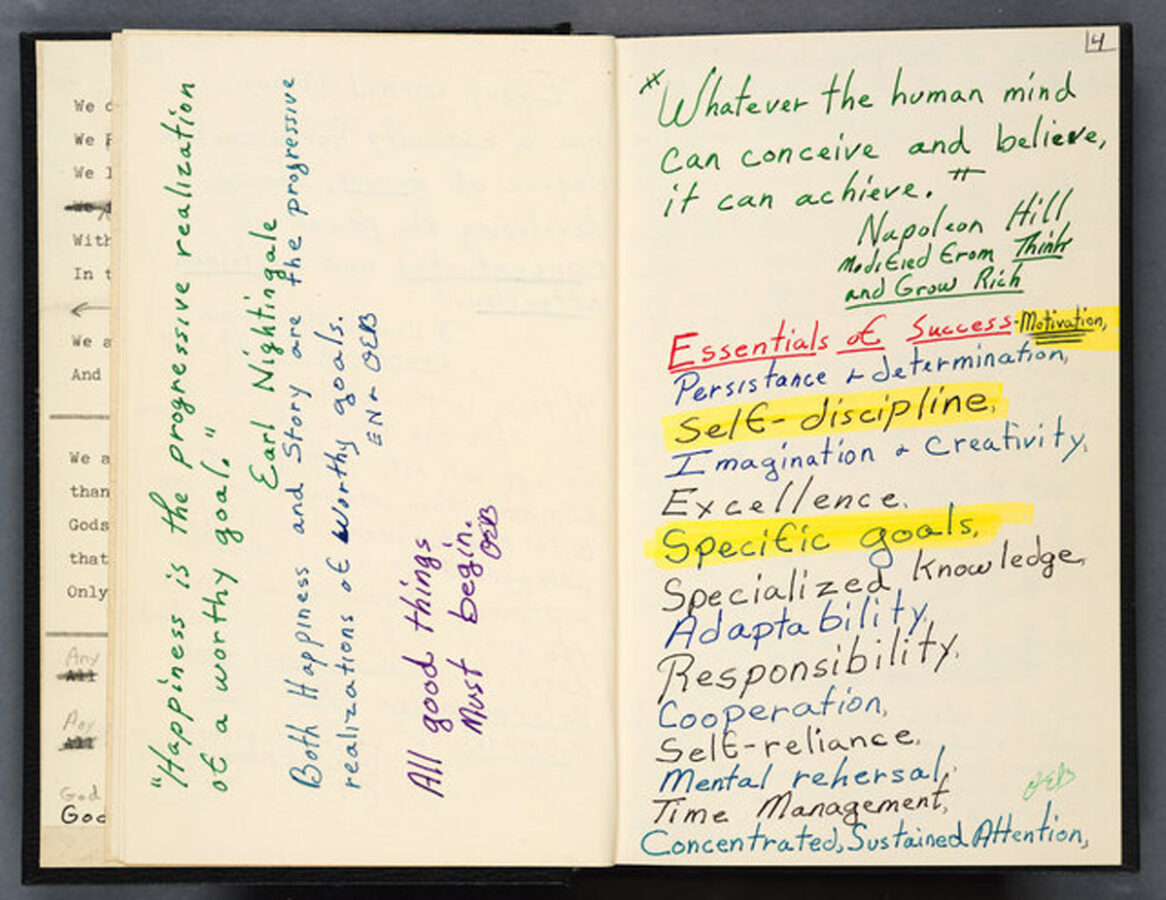 We
We
We
With
In
We a
And
We a
than
Gods
that
Only
Any
All
Any
All
God
God
"Happiness is the progressive realization
of a worthy goal."
Earl Nightingale
Both Happiness and Story are the progressive
realizations of worthy goals.
EN & OEB
All good things
Must begin.
OEB
4
"Whatever the human mind
can conceive and believe,
it can achieve."
Napoleon Hill
Modified From Think
and Grow Rich
Essentials of Success-Motivation,
Persistance & determination,
Self-discipline,
Imagination & Creativity,
Excellence,
Specific goals,
Specialized knowledge,
Adaptability,
Responsibility,
Cooperation,
Self-reliance,
Mental rehersal,
OEB
Time Management,
Concentrated, Sustained Attention,